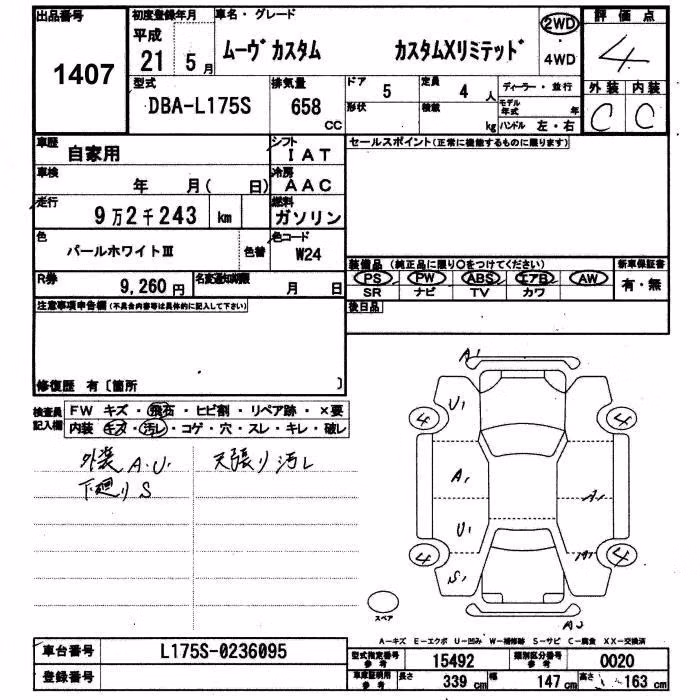 出品番号 初度登録年月 車名・グレード 2WD 評価点
1407 平成 21年 5月 ムーヴカスタム カスタムXリミテッド ・ 4WD 4
型式 排気量 ドア 5 定員 4人 ディーラー・並行 外装 内装
DBA-L175S 658 CC 形状 積載 kg モデル年式 年 C C
ハンドル 左・右
車歴 自家用 シフト IAT セールスポイント(正常に機能するものに限ります)
車検 年 月( 日) 冷房 AAC
走行 9万2千243 km 燃料 ガソリン
色 パールホワイトⅢ 色替 色コード W24
装備品 (純正品に限り○をつけてください) 新車保証書
R券 9,260円 名変通知期限 月 日 PS PW ABS エアB AW 有・無
SR ナビ TV カワ
注意事項申告欄(不具合内容等は具体的に記入して下さい) 後日品
修復歴 有〔箇所 〕
検査員記入欄 FW キズ・飛石・ヒビ割・リペア跡・×要
内装 キズ・汚レ・コゲ・穴・スレ・キレ・破レ
外装 A.U. 天張り汚レ
下廻りS
A1
U1
4 4
A1 A1
U1
4 A1 4
S1
スペア A2
A-キズ E-エクボ U-凹み W-補修跡 S-サビ C-腐食 XX-交換済
車台番号 L175S-0236095 型式指定番号 参考 15492 類別区分番号 参考 0020
登録番号 車庫証明用 参考 長さ 339cm 幅 147cm 高さ 163cm